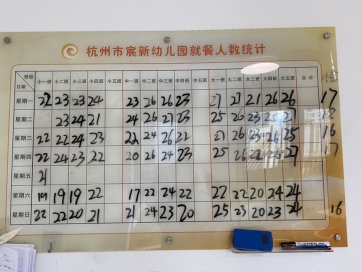 杭州市宸新幼儿园就餐人数统计
班级 日期 小一班 小二班 小三班 小四班 小五班 中一班 中二班 中三班 中四班 中五班 大一班 大二班 大三班 大四班 大五班 合计
星期一 22 23 23 24 23 26 26 23 27 23 21 26 26 17
星期二 23 24 21 24 26 27 23 25 26
星期三 22 22 24 23 22 24 26 22 27 26 23 25 16
星期四 22 24 23 22 20 26 24 23 25 26 27 17
星期五 21
星期六 19 19 19 22 17 22 24 22 22 22 20 24 24
星期日 22 22 20 21 21 24 23 20 25 23 20 23 24 16